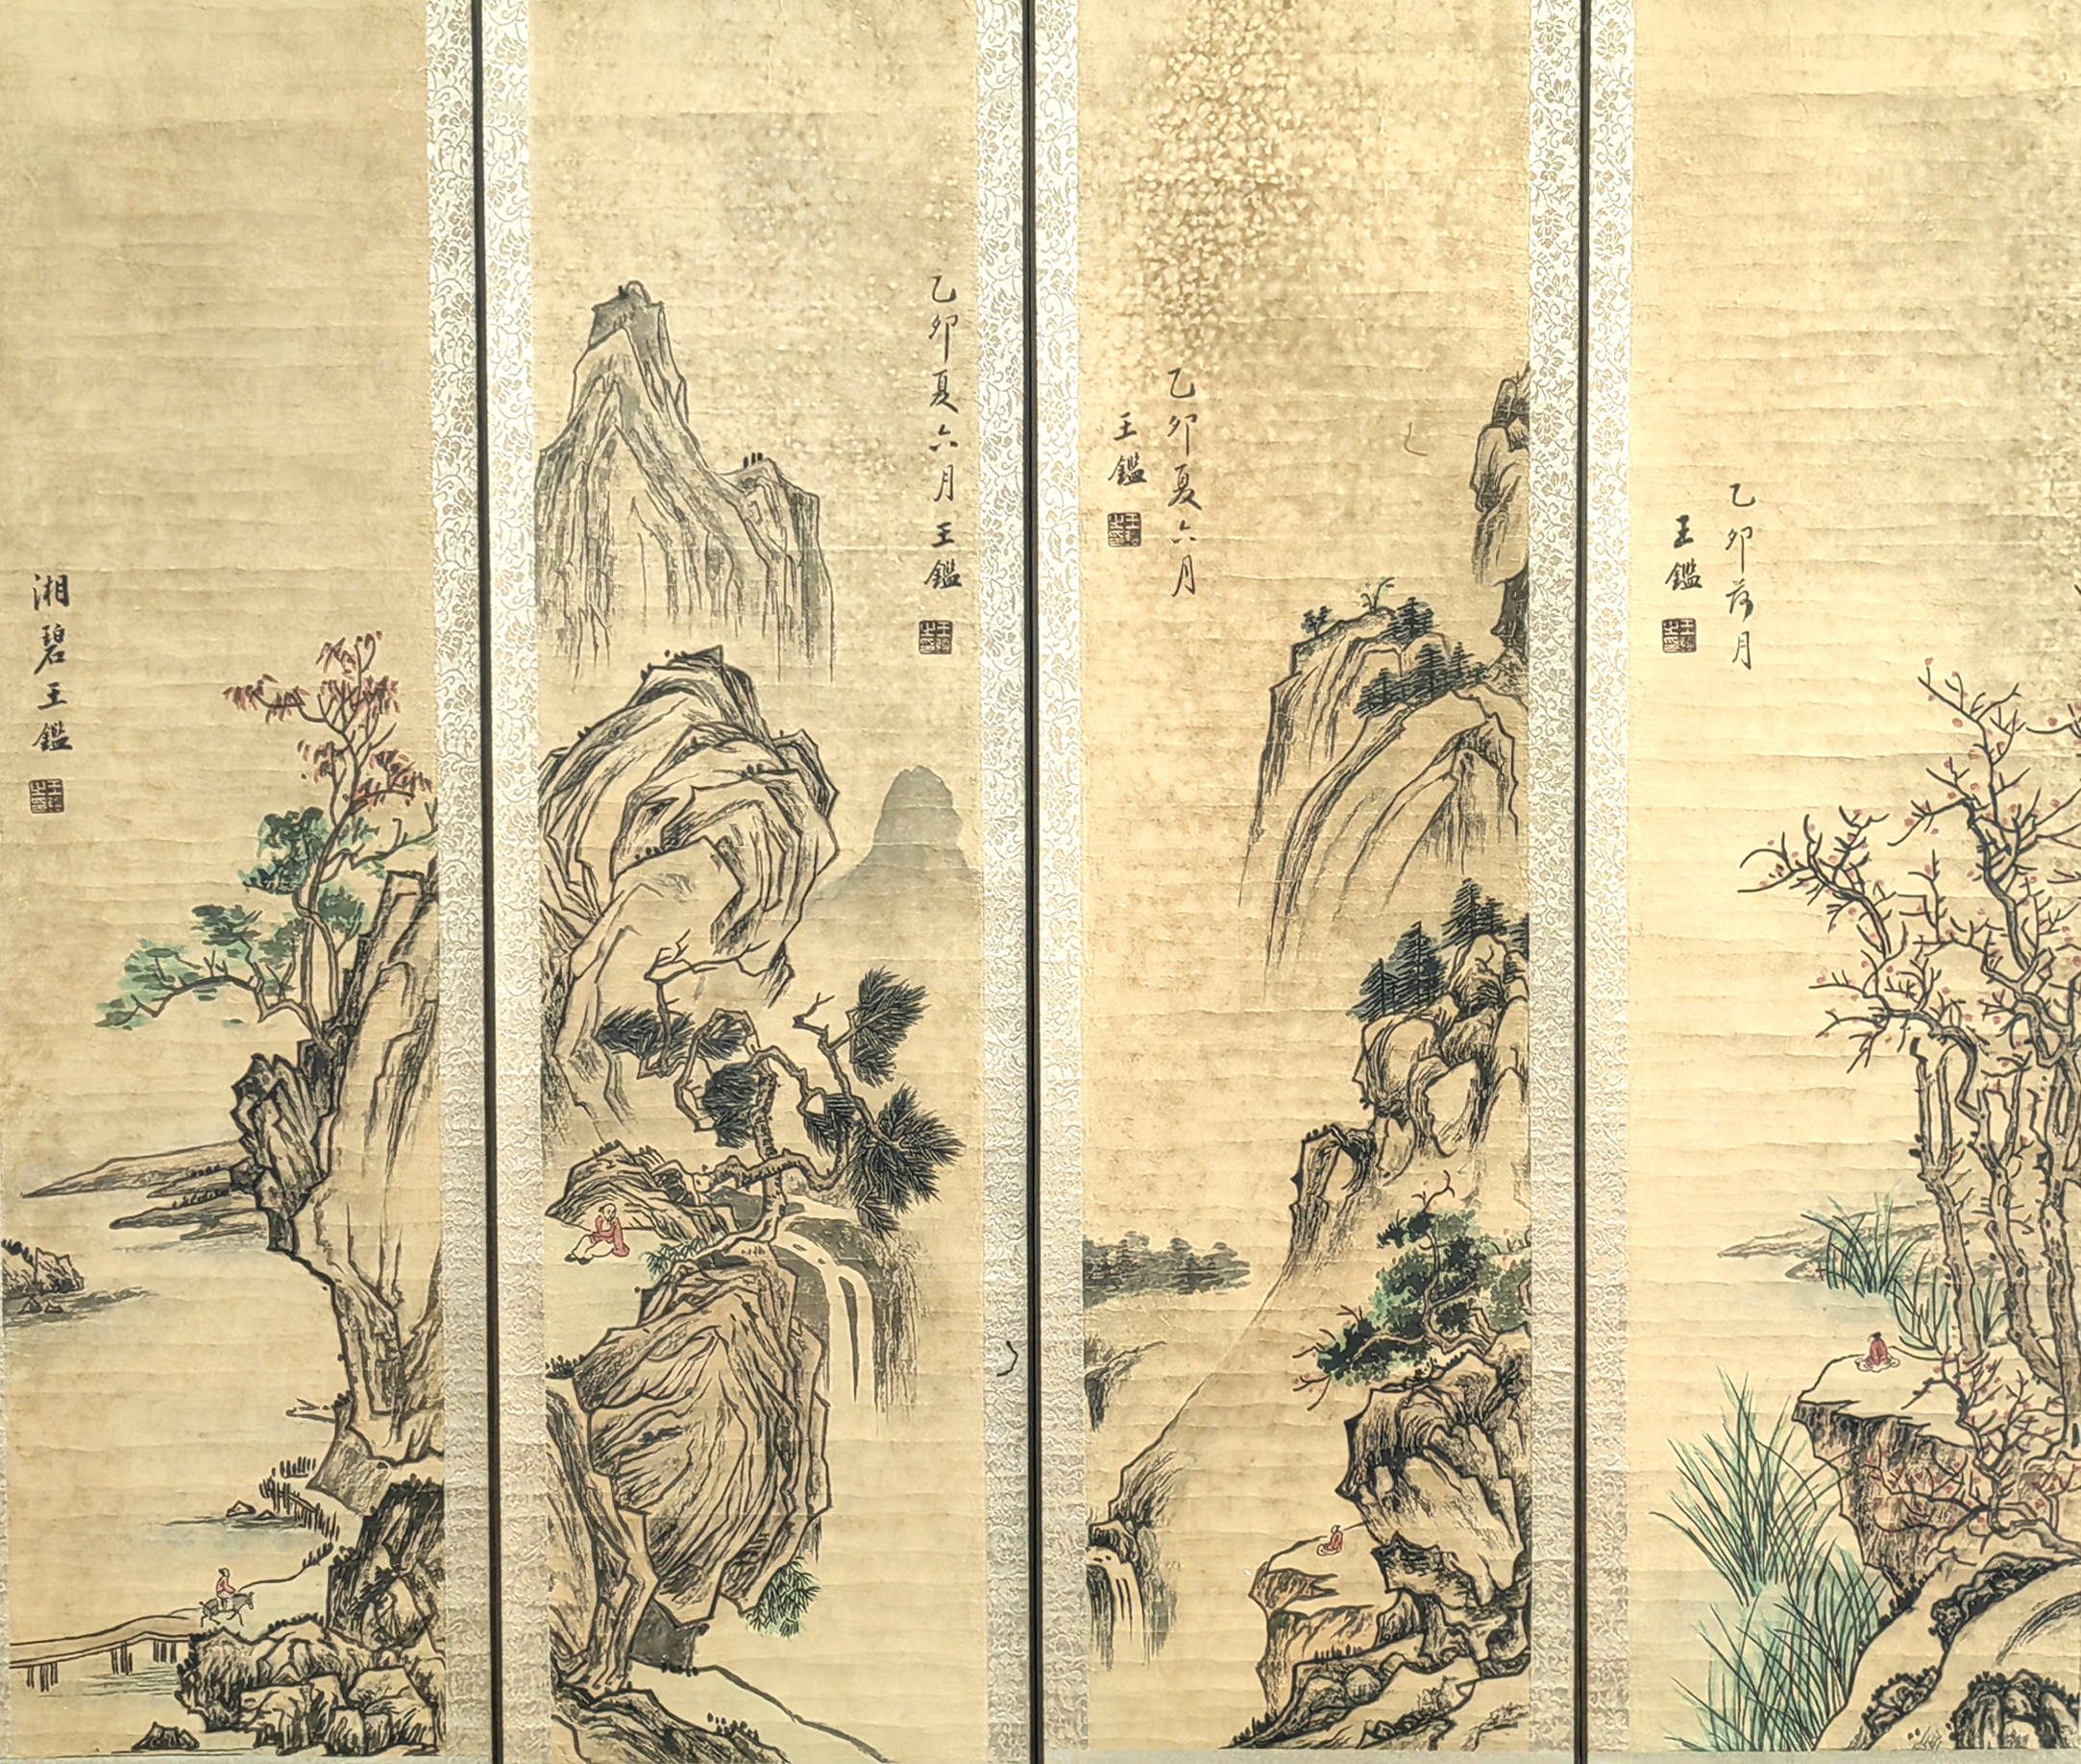 湘碧王鑑
乙卯夏六月王鑑
乙卯夏六月
王鑑
乙卯荷月
王鑑